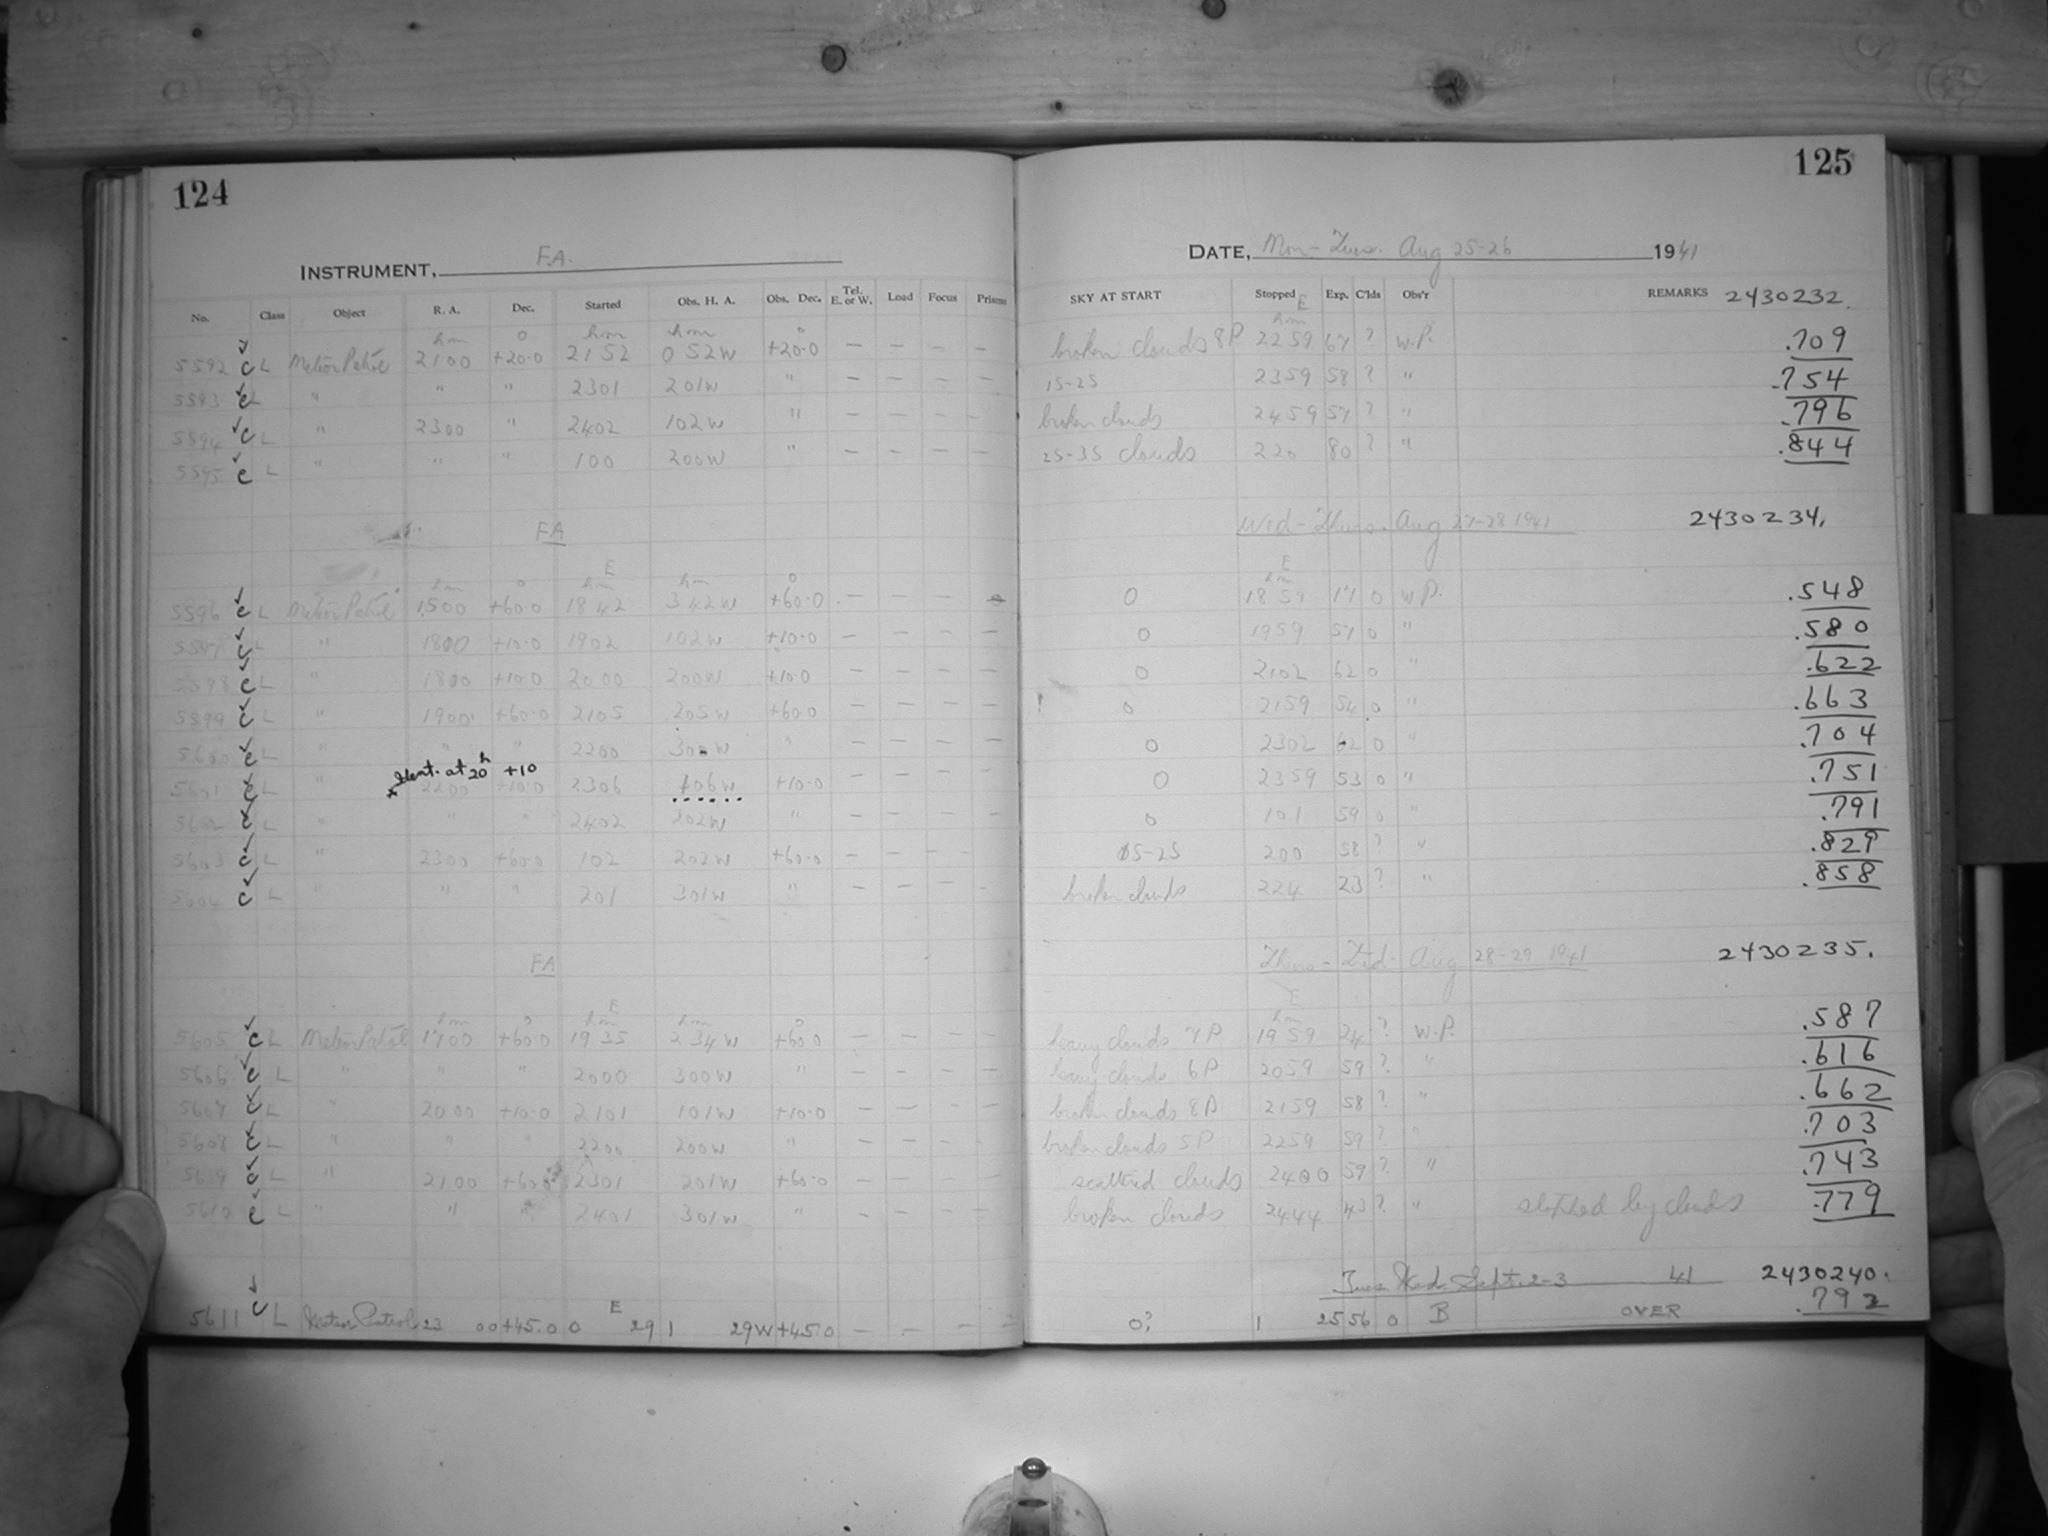 124
125
INSTRUMENT, F.A.
DATE, Mon-Tues. Aug 25-26 1941
No. Class Object R. A. Dec. Started Obs. H. A. Obs. Dec. Tel. E. or W. Load Focus Prisms SKY AT START Stopped E Exp. C'lds Obs'r REMARKS 2430232.
h m o h m h m o h m
5592 C L Meteor Patrol 2100 +20.0 2152 0 52W +20.0 — — — — broken clouds 8P 2259 67 ? W.P. .709
5593 C L " " " 2301 201W " — — — — 1S-2S 2359 58 ? " .754
5594 C L " 2300 " 2402 102W " — — — — broken clouds 2459 57 ? " .796
5595 C L " " " 100 200W " — — — — 2S-3S clouds 220 80 ? " .844
FA Wed-Thurs. Aug 27-28 1941 2430234.
h m o E h m h m o E h m
5596 C L Meteor Patrol 1500 +60.0 1842 342W +60.0 — — — — 0 1859 17 0 W.P. .548
5597 C L " 1800 +10.0 1902 102W +10.0 — — — — 0 1959 57 0 " .580
5598 C L " 1800 +10.0 2000 200W +10.0 — — — — 0 2102 62 0 " .622
5599 C L " 1900 +60.0 2105 205W +60.0 — — — — 0 2159 54 0 " .663
5600 C L " " " 2200 300W " — — — — 0 2302 62 0 " .704
Ident. at 20h +10
5601 C L " 2200 +10.0 2306 106W +10.0 — — — — 0 2359 53 0 " .751
5602 C L " " " 2402 202W " — — — — 0 101 59 0 " .791
5603 C L " 2300 +60.0 102 202W +60.0 — — — — 1S-2S 200 58 ? " .829
5604 C L " " " 201 301W " — — — — broken clouds 224 23 ? " .858
FA Thurs-Frid. Aug 28-29 1941 2430235.
h m o E h m h m o E h m
5605 C L Meteor Patrol 1700 +60.0 1935 234W +60.0 — — — — heavy clouds 7P 1959 24 ? W.P. .587
5606 C L " " " 2000 300W " — — — — heavy clouds 6P 2059 59 ? " .616
5607 C L " 2000 +10.0 2101 101W +10.0 — — — — broken clouds 8P 2159 58 ? " .662
5608 C L " " " 2200 200W " — — — — broken clouds 5P 2259 59 ? " .703
5609 C L " 2100 +60.0 2301 201W +60.0 — — — — scattered clouds 2400 59 ? " .743
5610 C L " " " 2401 301W " — — — — broken clouds 2444 43 ? " stopped by clouds .779
Tues Wed. Sept. 2-3 41 2430240.
E
5611 C L Meteor Patrol 23 00 +45.0 0 29 1 29W +45.0 — — — — 0? 1 25 56 0 B OVER .792